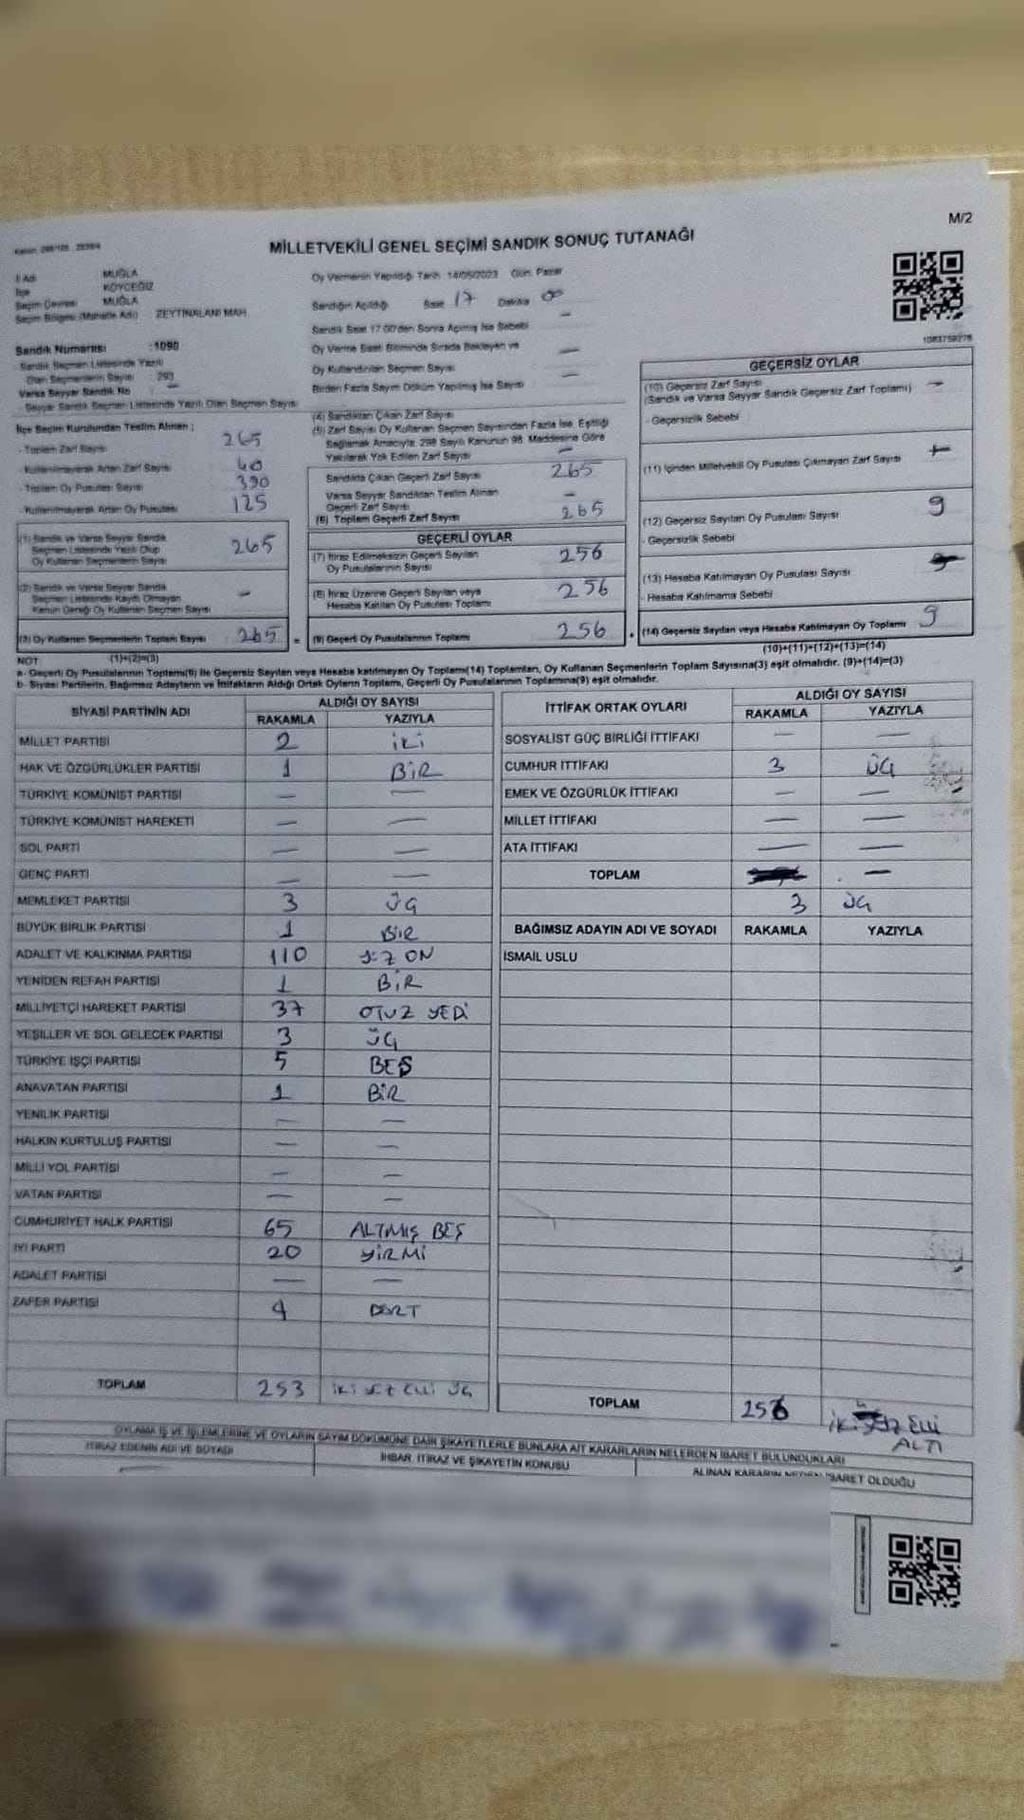 M/2
MİLLETVEKİLİ GENEL SEÇİMİ SANDIK SONUÇ TUTANAĞI
İl Adı MUĞLA
İlçe KÖYCEĞİZ
Seçim Çevresi MUĞLA
Seçim Bölgesi (Mahalle Adı) ZEYTİNALANI MAH.
Sandık Numarası :1090
Sandık Seçmen Listesinde Yazılı
Olan Seçmenlerin Sayısı 293
Varsa Seyyar Sandık No —
Seyyar Sandık Seçmen Listesinde Yazılı Olan Seçmen Sayısı
Oy Vermenin Yapıldığı Tarih 14/05/2023 Gün Pazar
Sandığın Açıldığı Saat 17 Dakika 00
Sandık Saat 17.00'den Sonra Açılmış İse Sebebi —
Oy Verme Saati Bitiminde Sırada Bekleyen ve
Oy Kullandırılan Seçmen Sayısı —
Birden Fazla Sayım Döküm Yapılmış İse Sayısı —
1083759276
İlçe Seçim Kurulundan Teslim Alınan ;
- Toplam Zarf Sayısı 265
- Kullanılmayarak Artan Zarf Sayısı 40
- Toplam Oy Pusulası Sayısı 390
- Kullanılmayarak Artan Oy Pusulası 125
(1) Sandık ve Varsa Seyyar Sandık
Seçmen Listesinde Yazılı Olup
Oy Kullanan Seçmenlerin Sayısı 265
(2) Sandık ve Varsa Seyyar Sandık
Seçmen Listesinde Kaydı Olmayan
Kanun Gereği Oy Kullanan Seçmen Sayısı -
(3) Oy Kullanan Seçmenlerin Toplam Sayısı 265 =
(1)+(2)=(3)
(4) Sandıktan Çıkan Zarf Sayısı
(5) Zarf Sayısı Oy Kullanan Seçmen Sayısından Fazla İse, Eşitliği
Sağlamak Amacıyla 298 Sayılı Kanunun 98. Maddesine Göre
Yakılarak Yok Edilen Zarf Sayısı —
Sandıkta Çıkan Geçerli Zarf Sayısı 265
Varsa Seyyar Sandıktan Teslim Alınan
Geçerli Zarf Sayısı —
(6) Toplam Geçerli Zarf Sayısı 265
GEÇERLİ OYLAR
(7) İtiraz Edilmeksizin Geçerli Sayılan
Oy Pusulalarının Sayısı 256
(8) İtiraz Üzerine Geçerli Sayılan veya
Hesaba Katılan Oy Pusulası Toplamı 256
(9) Geçerli Oy Pusulalarının Toplamı 256 +
GEÇERSİZ OYLAR
(10) Geçersiz Zarf Sayısı —
(Sandık ve Varsa Seyyar Sandık Geçersiz Zarf Toplamı)
- Geçersizlik Sebebi
(11) İçinden Milletvekili Oy Pusulası Çıkmayan Zarf Sayısı
(12) Geçersiz Sayılan Oy Pusulası Sayısı 9
- Geçersizlik Sebebi
(13) Hesaba Katılmayan Oy Pusulası Sayısı
- Hesaba Katılmama Sebebi
(14) Geçersiz Sayılan veya Hesaba Katılmayan Oy Toplamı 9
(10)+(11)+(12)+(13)=(14)
NOT
a- Geçerli Oy Pusulalarının Toplamı(9) ile Geçersiz Sayılan veya Hesaba katılmayan Oy Toplamı(14) Toplamları, Oy Kullanan Seçmenlerin Toplam Sayısına(3) eşit olmalıdır. (9)+(14)=(3)
b- Siyasi Partilerin, Bağımsız Adayların ve İttifakların Aldığı Ortak Oyların Toplamı, Geçerli Oy Pusulalarının Toplamına(9) eşit olmalıdır.
SİYASİ PARTİNİN ADI ALDIĞI OY SAYISI
RAKAMLA YAZIYLA
MİLLET PARTİSİ 2 İKİ
HAK VE ÖZGÜRLÜKLER PARTİSİ 1 BİR
TÜRKİYE KOMÜNİST PARTİSİ — —
TÜRKİYE KOMÜNİST HAREKETİ — —
SOL PARTİ — —
GENÇ PARTİ — —
MEMLEKET PARTİSİ 3 ÜÇ
BÜYÜK BİRLİK PARTİSİ 1 BİR
ADALET VE KALKINMA PARTİSİ 110 YÜZ ON
YENİDEN REFAH PARTİSİ 1 BİR
MİLLİYETÇİ HAREKET PARTİSİ 37 OTUZ YEDİ
YEŞİLLER VE SOL GELECEK PARTİSİ 3 ÜÇ
TÜRKİYE İŞÇİ PARTİSİ 5 BEŞ
ANAVATAN PARTİSİ 1 BİR
YENİLİK PARTİSİ — —
HALKIN KURTULUŞ PARTİSİ — —
MİLLİ YOL PARTİSİ — —
VATAN PARTİSİ — —
CUMHURİYET HALK PARTİSİ 65 ALTMIŞ BEŞ
İYİ PARTİ 20 YİRMİ
ADALET PARTİSİ — —
ZAFER PARTİSİ 4 DÖRT
TOPLAM 253 İKİ YÜZ ELLİ ÜÇ
İTTİFAK ORTAK OYLARI ALDIĞI OY SAYISI
RAKAMLA YAZIYLA
SOSYALİST GÜÇ BİRLİĞİ İTTİFAKI — —
CUMHUR İTTİFAKI 3 ÜÇ
EMEK VE ÖZGÜRLÜK İTTİFAKI — —
MİLLET İTTİFAKI — —
ATA İTTİFAKI — —
TOPLAM —
3 ÜÇ
BAĞIMSIZ ADAYIN ADI VE SOYADI RAKAMLA YAZIYLA
İSMAİL USLU
TOPLAM 256 İKİ YÜZ ELLİ
ALTI
OYLAMA İŞ VE İŞLEMLERİNE VE OYLARIN SAYIM DÖKÜMÜNE DAİR ŞİKAYETLERLE BUNLARA AİT KARARLARIN NELERDEN İBARET BULUNDUKLARI
İTİRAZ EDENİN ADI VE SOYADI İHBAR, İTİRAZ VE ŞİKAYETİN KONUSU ALINAN KARARIN NEDEN İBARET OLDUĞU